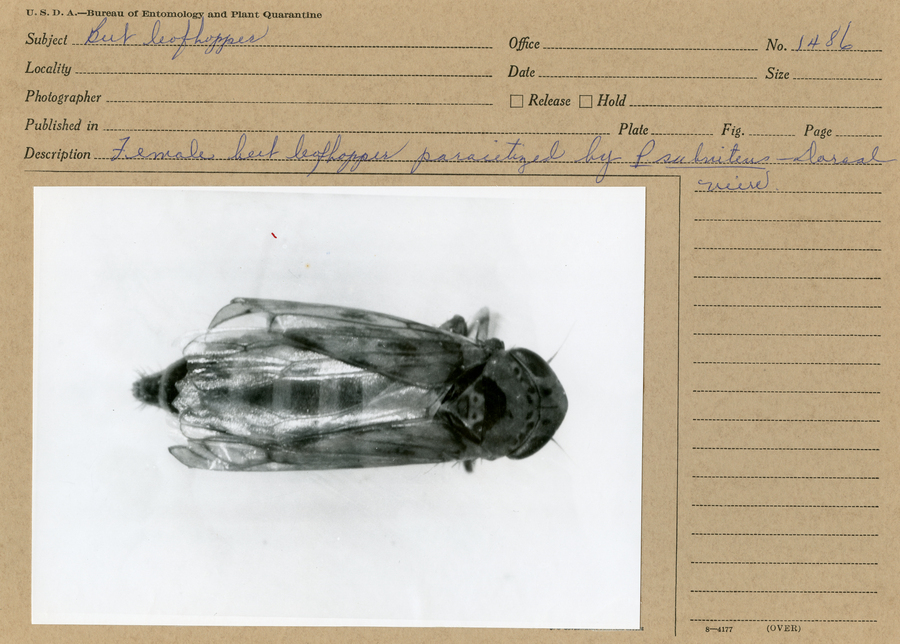 U. S. D. A.—Bureau of Entomology and Plant Quarantine
Subject Beet leafhopper Office No. 1486
Locality Date Size
Photographer Release Hold
Published in Plate Fig. Page
Description Female beet leafhopper parasitized by P subnitens - dorsal
view.
8—4177 (OVER)